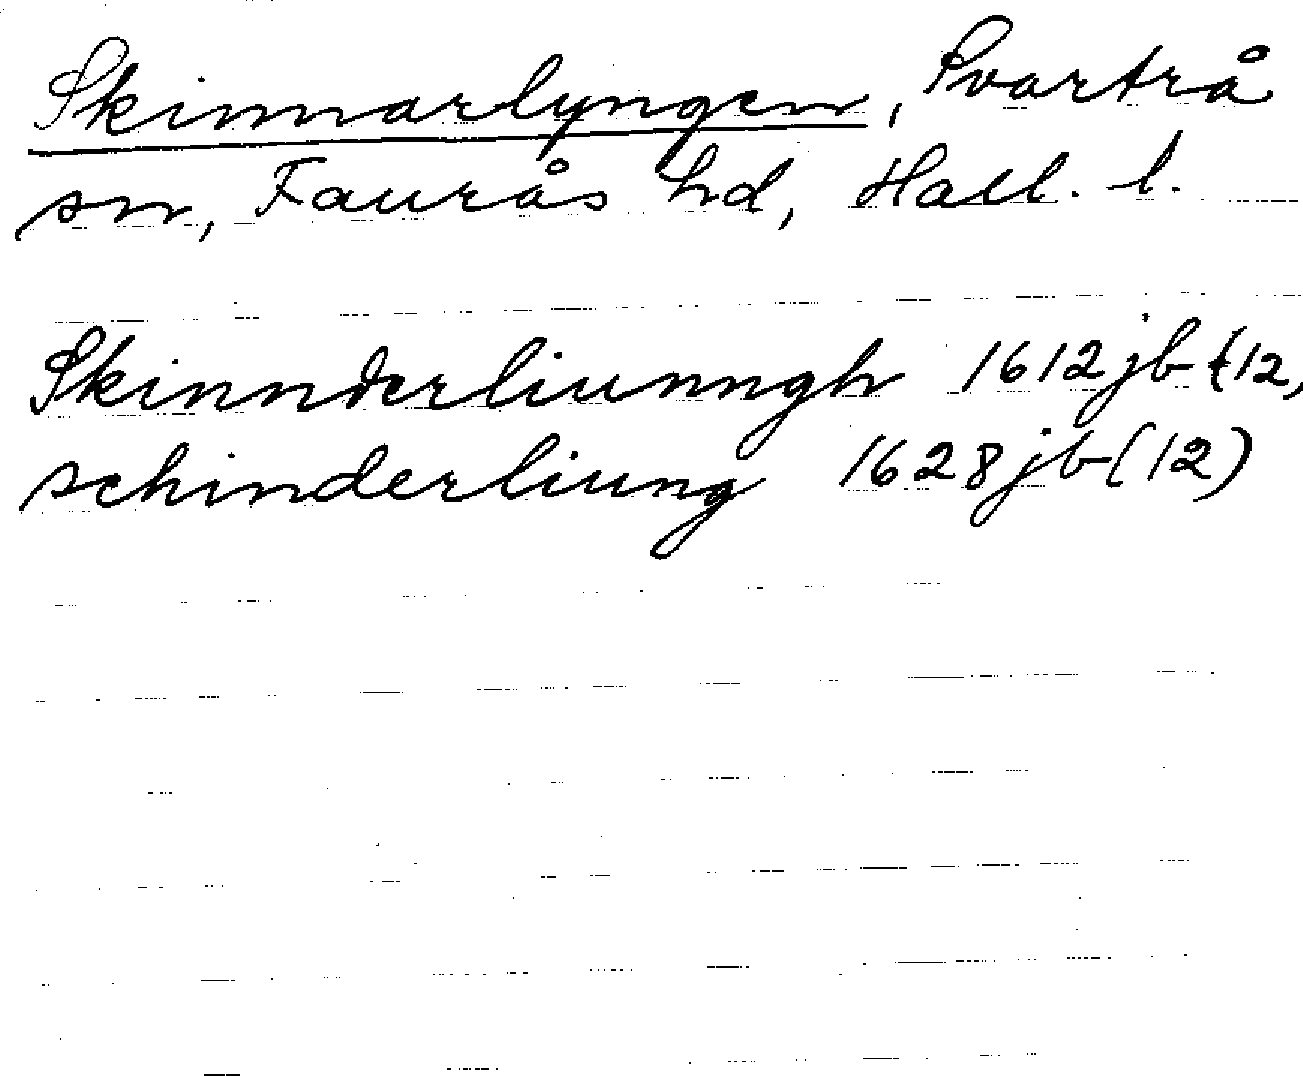 Skinnarlyngen, Svartrå
sn, Faurås hd, Hall. l.
Skinnderliunngh 1612jb(12,
schinderliung 1628jb(12)